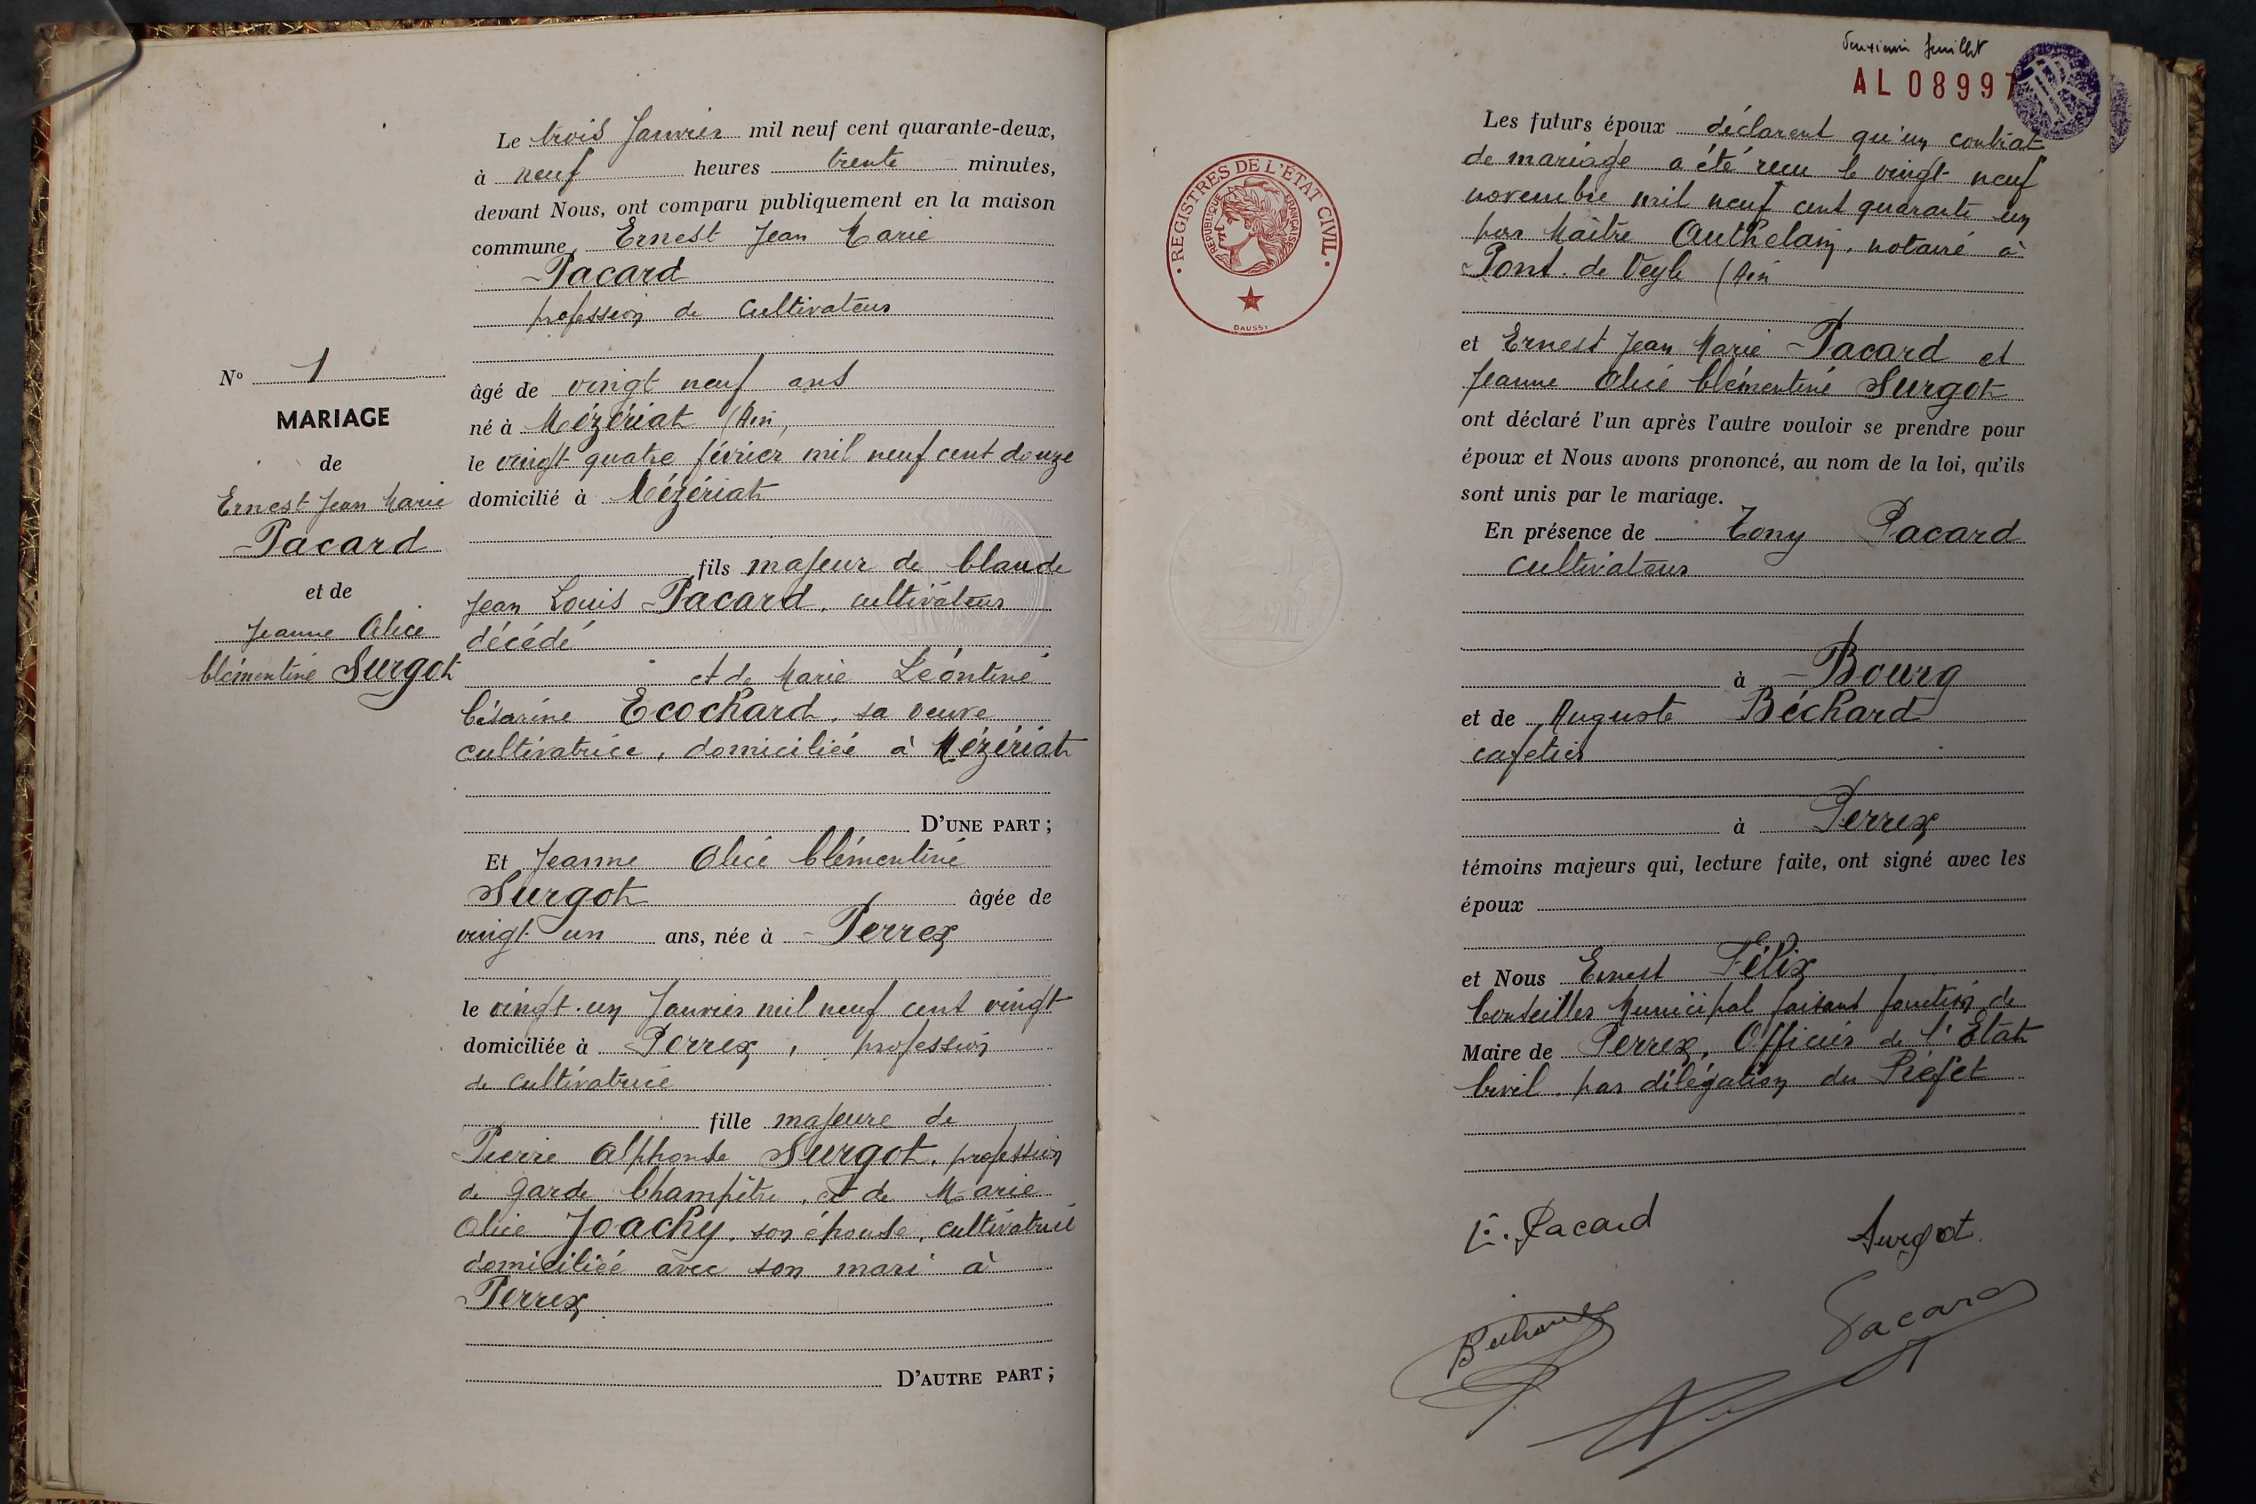 Le trois Janvier mil neuf cent quarante-deux,
à neuf heures trente minutes,
devant Nous, ont comparu publiquement en la maison
commune Ernest Jean Marie
Pacard
profession de Cultivateur
âgé de vingt neuf ans
né à Mézériat (Ain)
le vingt quatre février mil neuf cent douze
domicilié à Mézériat
fils majeur de Claude
Jean Louis Pacard, cultivateur
décédé
et de Marie Léontine
Césarine Ecochard, sa veuve
cultivatrice, domiciliée à Mézériat
D'UNE PART ;
Et Jeanne Alice Clémentine
Surgot âgée de
vingt un ans, née à Perrex
le vingt-un Janvier mil neuf cent vingt
domiciliée à Perrex, profession
de cultivatrice
fille majeure de
Pierre Alphonse Surgot, profession
de Garde Champêtre, et de Marie
Alice Joachy, son épouse, cultivatrice
domiciliée avec son mari à
Perrex
D'AUTRE PART ;
N° 1
MARIAGE
de
Ernest Jean Marie
Pacard
et de
Jeanne Alice
Clémentine Surgot
REGISTRES DE L'ETAT CIVIL
REPUBLIQUE FRANÇAISE
DAUSSY
Deuxième feuillet
AL 08997
Les futurs époux déclarent qu'un contrat
de mariage a été reçu le vingt neuf
novembre mil neuf cent quarante un
par Maître Authelain, notaire à
Pont-de-Veyle (Ain
et Ernest Jean Marie Pacard et
Jeanne Alice Clémentine Surgot
ont déclaré l'un après l'autre vouloir se prendre pour
époux et Nous avons prononcé, au nom de la loi, qu'ils
sont unis par le mariage.
En présence de Tony Pacard
cultivateur
à Bourg
et de Auguste Béchard
cafetier
à Perrex
témoins majeurs qui, lecture faite, ont signé avec les
époux
et Nous Ernest Félix
Conseiller Municipal faisant fonction de
Maire de Perrex, Officier de l'Etat
Civil, par délégation du Préfet
E. Pacard
Surgot
Béchard
Pacard